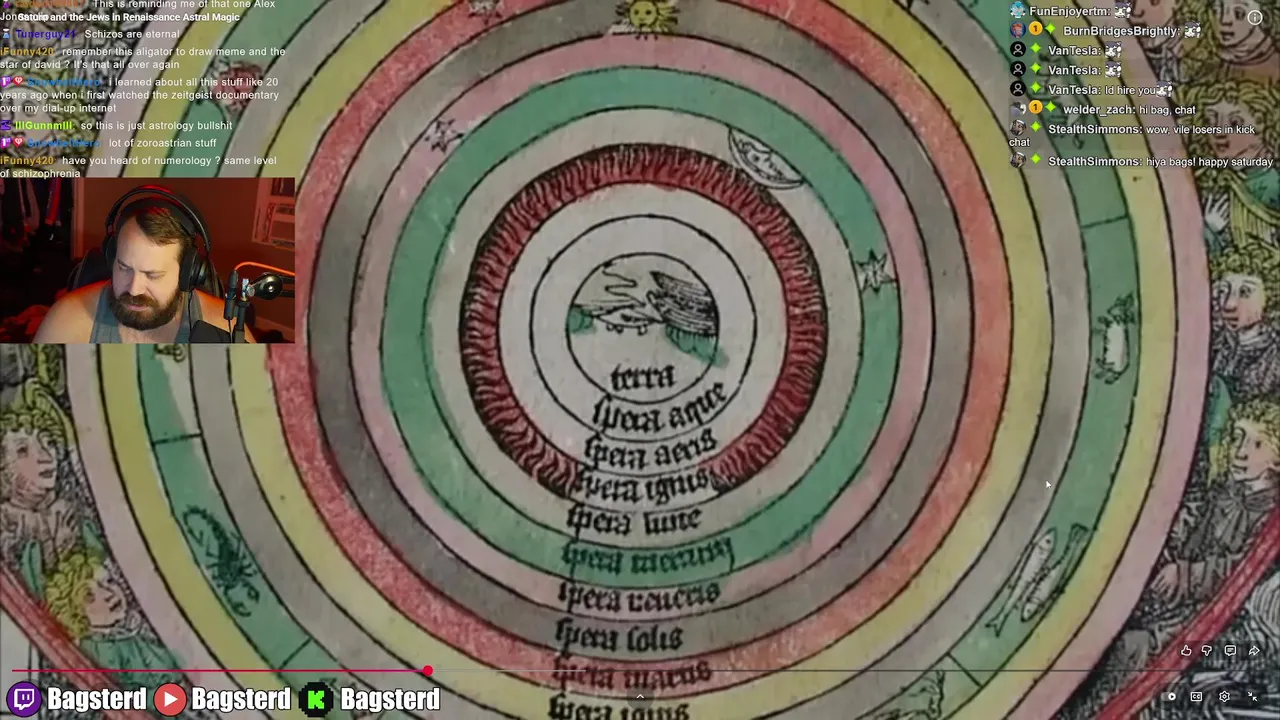 This is reminding me of that one Alex
Saturn and the Jews in Renaissance Astral Magic
Tunerguy21: Schizos are eternal
iFunny420: remember this aligator to draw meme and the
star of david ? It's that all over again
i learned about all this stuff like 20
years ago when i first watched the zeitgeist documentary
over my dial-up internet
IllGunnmIll: so this is just astrology bullshit
lot of zoroastrian stuff
iFunny420: have you heard of numerology ? same level
of schizophrenia
FunEnjoyertm:
1 BurnBridgesBrightly:
VanTesla:
VanTesla:
VanTesla: Id hire you
1 welder_zach: hi bag, chat
StealthSimmons: wow, vile losers in kick
chat
StealthSimmons: hiya bags! happy saturday
terra
spera aque
spera aeris
spera ignis
spera lune
spera mercurij
spera veneris
spera solis
spera martis
Bagsterd Bagsterd Bagsterd